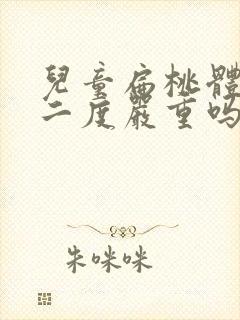 兒童扁桃體
二度嚴重吗
朱咪咪